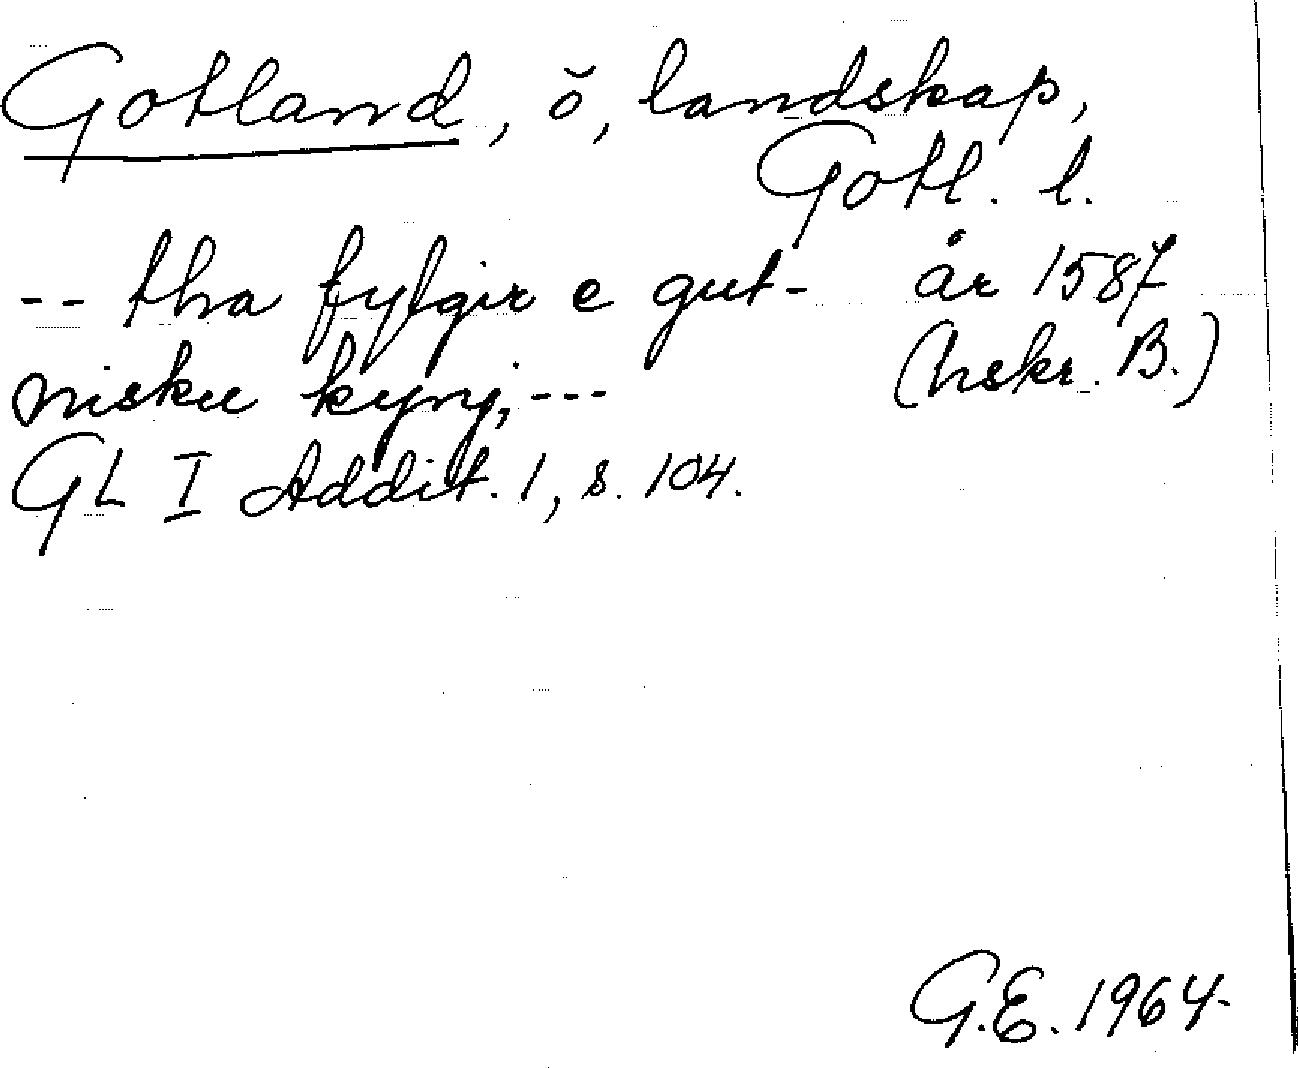 Gotland, ö, landskap,
Gotl. l.
-- tha fylgir e gut- år 1587
nisku kyny, --- (hskr. B.)
GL I Addit. 1, s. 104.
G.E. 1964